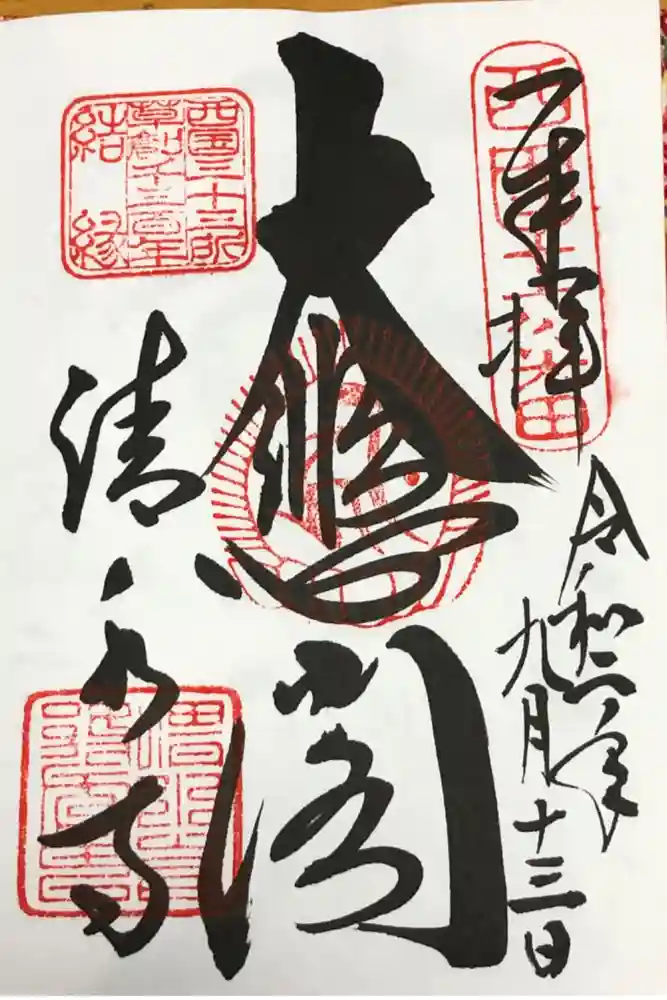 奉拝
西国十六番
令和二年
九月十三日
大悲閣
清水寺
西国三十三所
草創千三百年
結縁